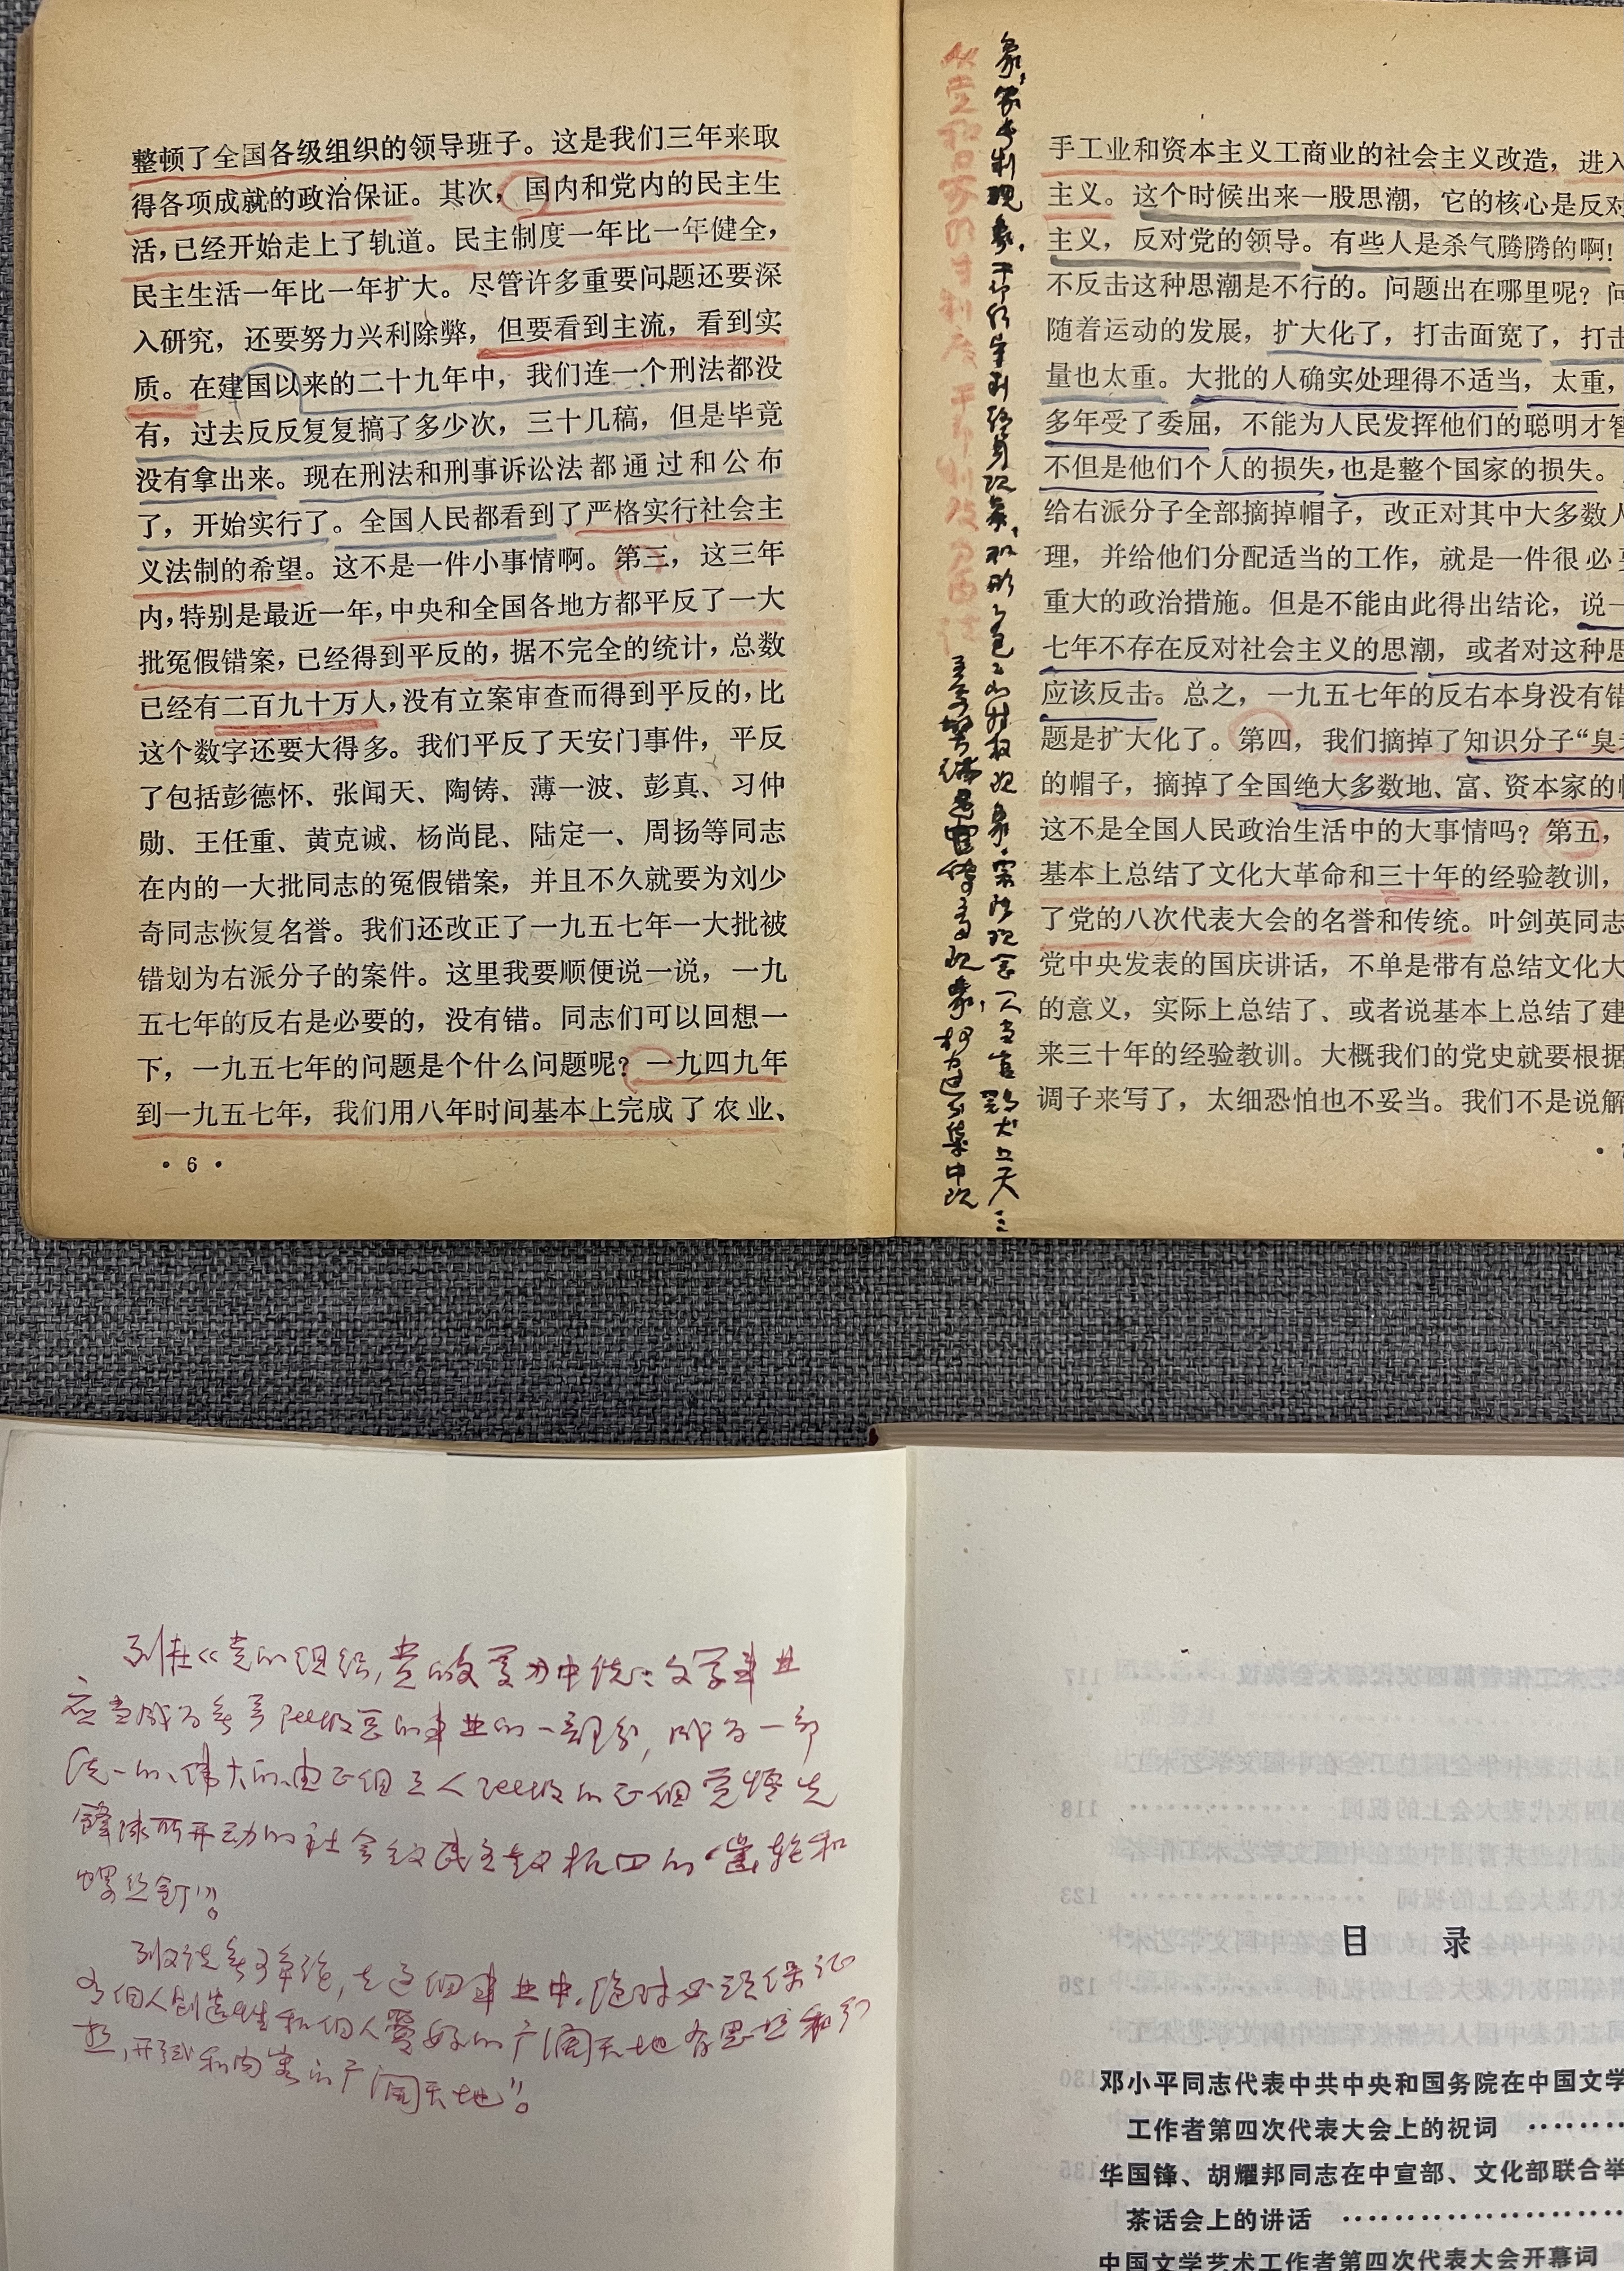 整顿了全国各级组织的领导班子。这是我们三年来取
得各项成就的政治保证。其次，国内和党内的民主生
活，已经开始走上了轨道。民主制度一年比一年健全，
民主生活一年比一年扩大。尽管许多重要问题还要深
入研究，还要努力兴利除弊，但要看到主流，看到实
质。在建国以来的二十九年中，我们连一个刑法都没
有，过去反反复复搞了多少次，三十几稿，但是毕竟
没有拿出来。现在刑法和刑事诉讼法都通过和公布
了，开始实行了。全国人民都看到了严格实行社会主
义法制的希望。这不是一件小事情啊。第三，这三年
内，特别是最近一年，中央和全国各地方都平反了一大
批冤假错案，已经得到平反的，据不完全的统计，总数
已经有二百九十万人，没有立案审查而得到平反的，比
这个数字还要大得多。我们平反了天安门事件，平反
了包括彭德怀、张闻天、陶铸、薄一波、彭真、习仲
勋、王任重、黄克诚、杨尚昆、陆定一、周扬等同志
在内的一大批同志的冤假错案，并且不久就要为刘少
奇同志恢复名誉。我们还改正了一九五七年一大批被
错划为右派分子的案件。这里我要顺便说一说，一九
五七年的反右是必要的，没有错。同志们可以回想一
下，一九五七年的问题是个什么问题呢？一九四九年
到一九五七年，我们用八年时间基本上完成了农业、
·6·
象，家长制现象，干部终身制
现象，和形形色色
特权现象
宗法观念
一人当官鸡犬上天
权力过于集中现
手工业和资本主义工商业的社会主义改造，进入
主义。这个时候出来一股思潮，它的核心是反对
主义，反对党的领导。有些人是杀气腾腾的啊！
不反击这种思潮是不行的。问题出在哪里呢？问
随着运动的发展，扩大化了，打击面宽了，打击
量也太重。大批的人确实处理得不适当，太重，
多年受了委屈，不能为人民发挥他们的聪明才智
不但是他们个人的损失，也是整个国家的损失。
给右派分子全部摘掉帽子，改正对其中大多数人
理，并给他们分配适当的工作，就是一件很必要
重大的政治措施。但是不能由此得出结论，说一
七年不存在反对社会主义的思潮，或者对这种思
应该反击。总之，一九五七年的反右本身没有错
题是扩大化了。第四，我们摘掉了知识分子“臭老
的帽子，摘掉了全国绝大多数地、富、资本家的帽
这不是全国人民政治生活中的大事情吗？第五，
基本上总结了文化大革命和三十年的经验教训，
了党的八次代表大会的名誉和传统。叶剑英同志
党中央发表的国庆讲话，不单是带有总结文化大
的意义，实际上总结了、或者说基本上总结了建
来三十年的经验教训。大概我们的党史就要根据
调子来写了，太细恐怕也不妥当。我们不是说解
列在《党的组织，党的文学》中说：文学事业
应当成为无产阶级总的事业的一部分，成为一部
统一的、伟大的、由正個工人阶级的正個觉悟先
鋒队所开动的社会民主主义机四的“齿轮和
螺丝釘”。
列又说无可争论，在这個事业中，绝对必须保证
有個人创造性和個人爱好的广阔天地有思想和幻
想，形式和内容的广阔天地”。
目 录
邓小平同志代表中共中央和国务院在中国文学
工作者第四次代表大会上的祝词
华国锋、胡耀邦同志在中宣部、文化部联合举
茶话会上的讲话
中国文学艺术工作者第四次代表大会开幕词